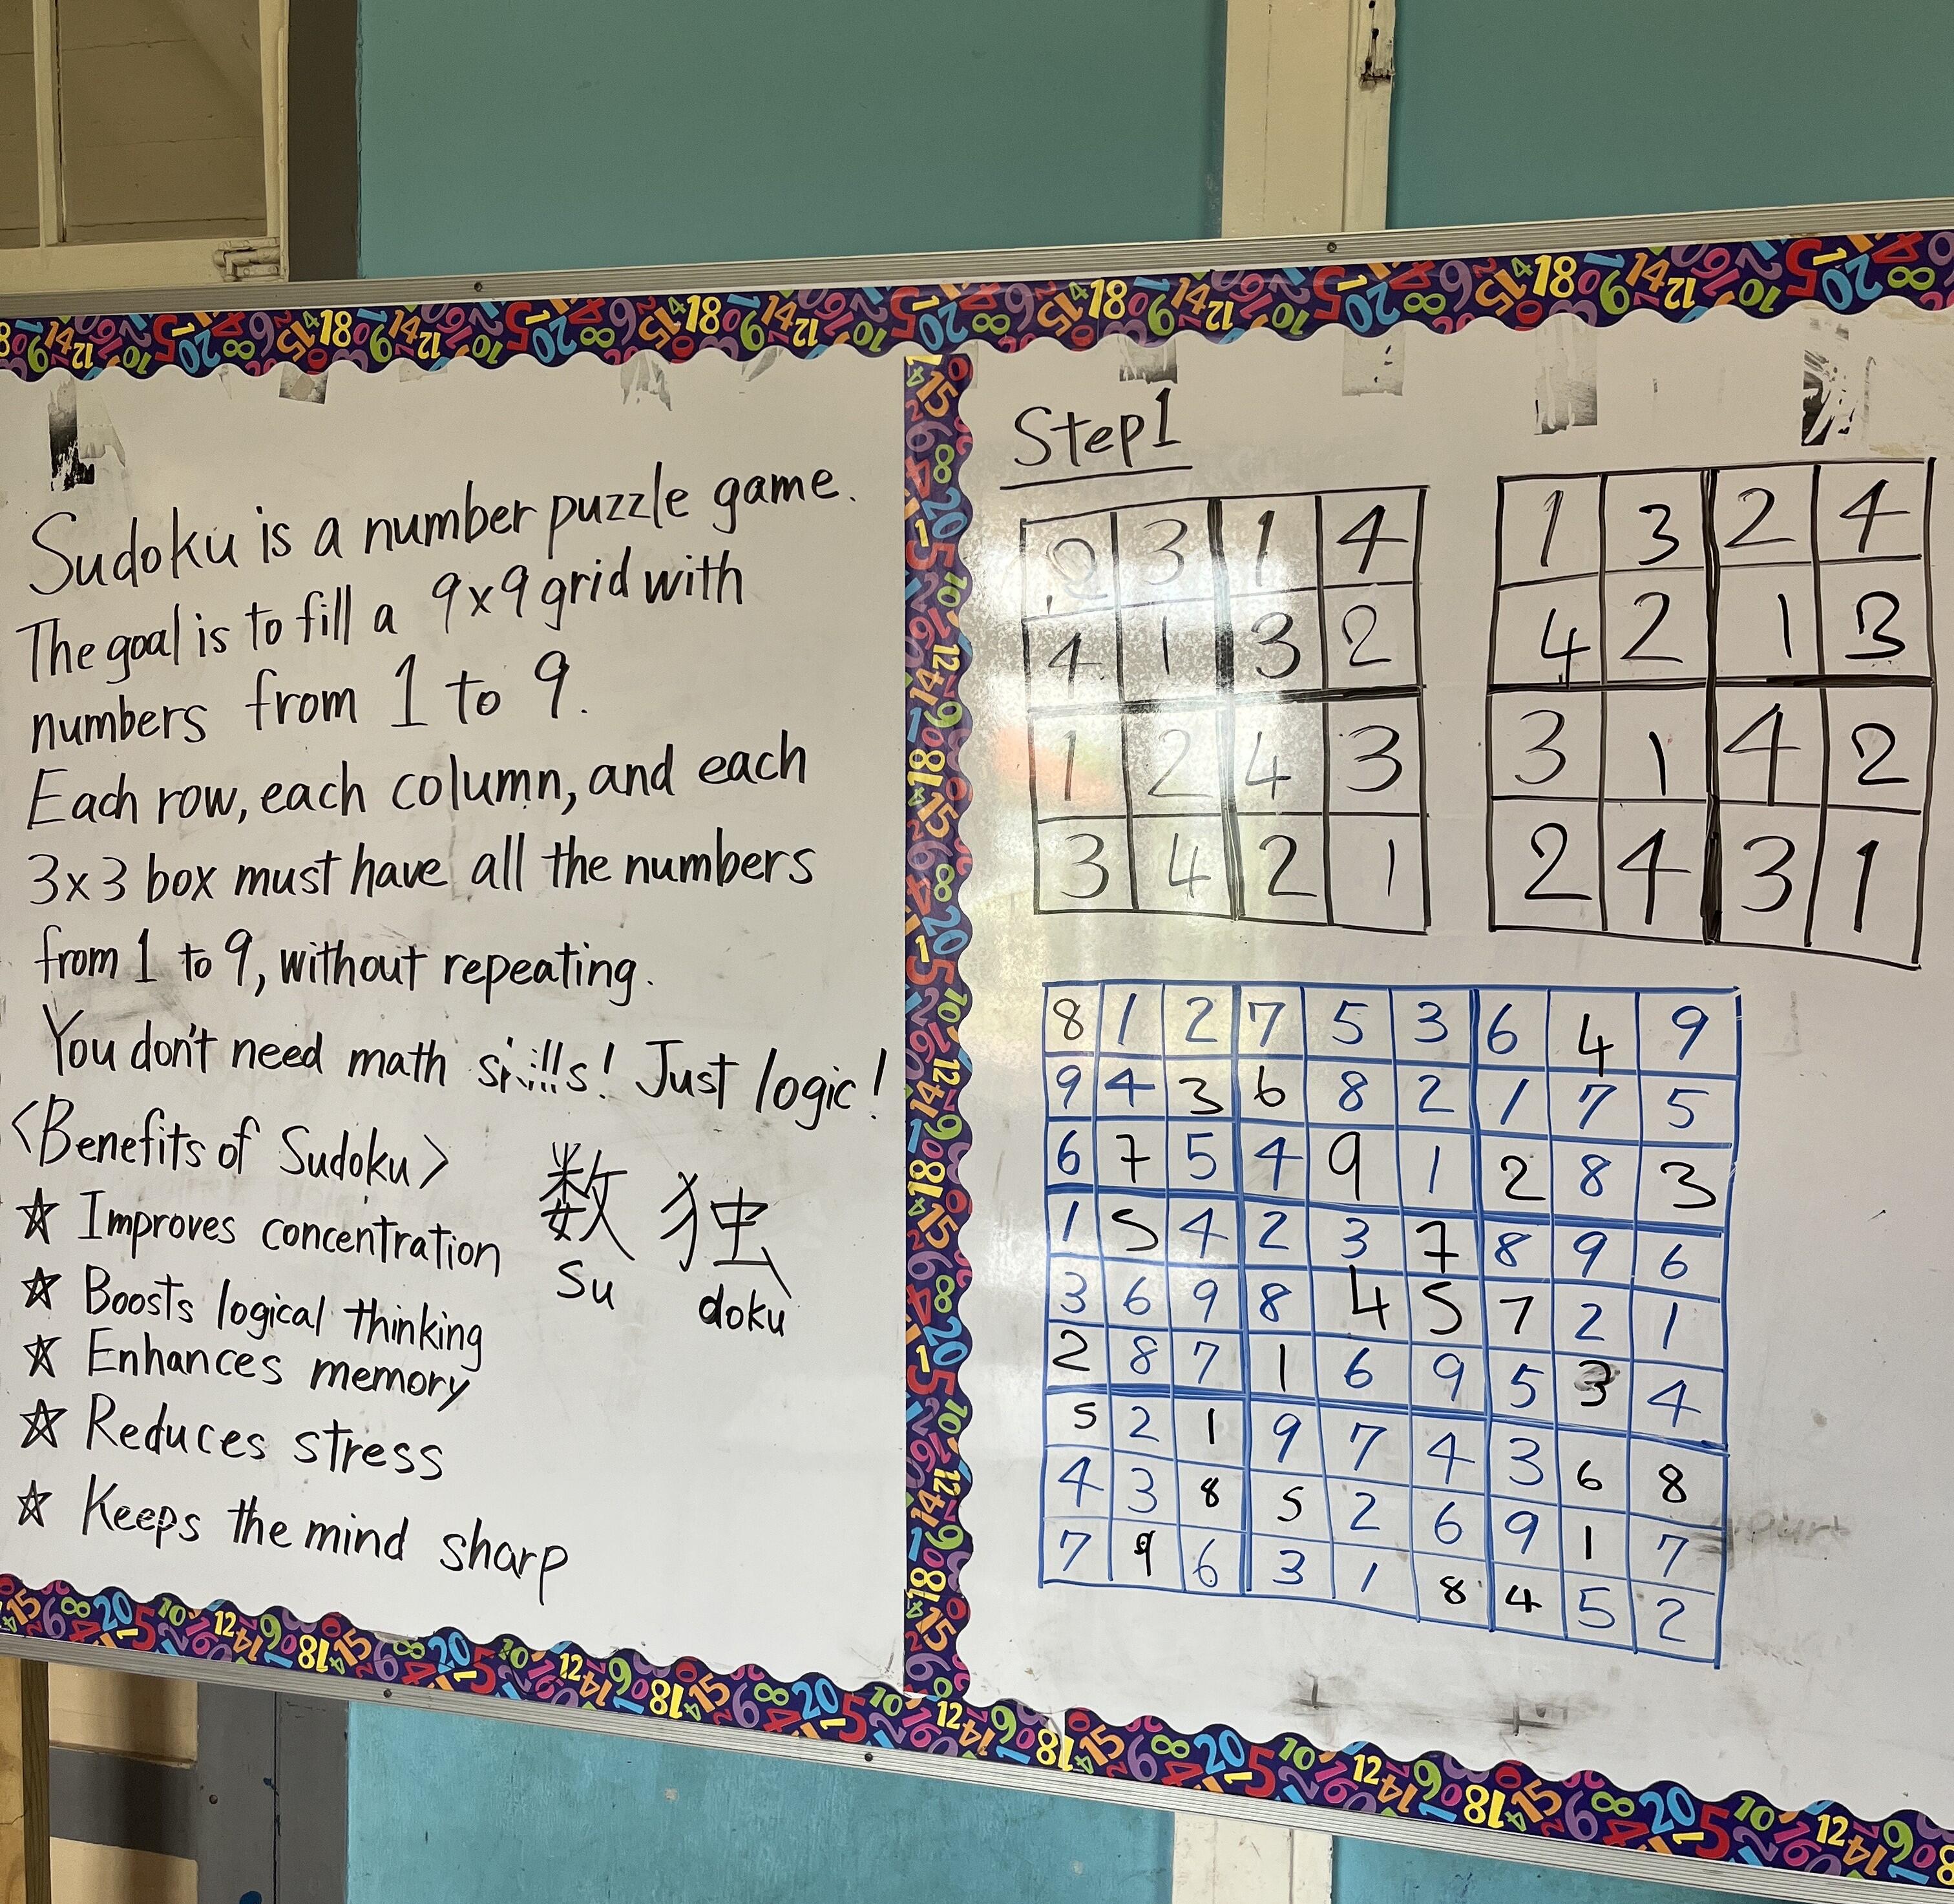 Sudoku is a number puzzle game.
The goal is to fill a 9x9 grid with
numbers from 1 to 9.
Each row, each column, and each
3x3 box must have all the numbers
from 1 to 9, without repeating.
You don't need math skills! Just logic!
<Benefits of Sudoku>
☆ Improves concentration
☆ Boosts logical thinking
☆ Enhances memory
☆ Reduces stress
☆ Keeps the mind sharp
数 独
Su doku
Step 1
3 1 4
4 1 3 2
1 2 4 3
3 4 2 1
1 3 2 4
4 2 1 3
3 1 4 2
2 4 3 1
8 1 2 7 5 3 6 4 9
9 4 3 6 8 2 1 7 5
6 7 5 4 9 1 2 8 3
1 5 4 2 3 7 8 9 6
3 6 9 8 4 5 7 2 1
2 8 7 1 6 9 5 3 4
5 2 1 9 7 4 3 6 8
4 3 8 5 2 6 9 1 7
7 9 6 3 1 8 4 5 2